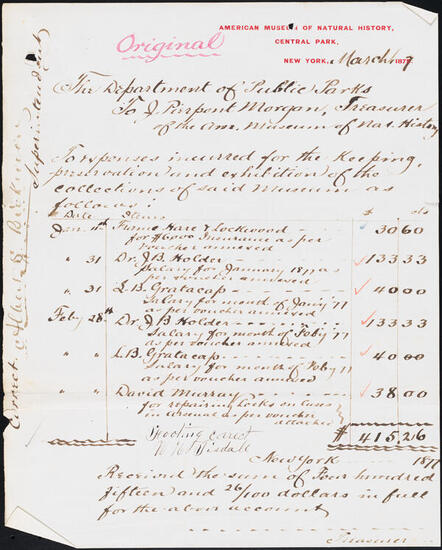 AMERICAN MUSEUM OF NATURAL HISTORY,
CENTRAL PARK,
Original
NEW YORK, March 1 1877
The Department of Public Parks
To J. Pierpont Morgan, Treasurer
of the Am. Museum of Nat. History
To expenses incurred for the keeping,
preservation and exhibition of the
collections of said Museum as
follows:
Date Items $ cts
Jan 11th Furnis Hare & Lockwood 30 60
for $6000 Insurance as per
voucher annexed
" 31 Dr. J. B. Holder 133 33
Salary for January 1877 as
per voucher annexed
" 31 L. B. Gratacap 40 00
Salary for month of Jany '77
as per voucher annexed
Feby 28th Dr. J. B. Holder 133 33
Salary for month of Feby '77
as per voucher annexed
" " L. B. Gratacap 40 00
Salary for month of Feby '77
as per voucher annexed
" " David Murray 38 00
for repairing Locks on Cases
in arsenal as per voucher
attached
$ 415,26
Footing correct
New York 1877
Received the sum of Four hundred
fifteen and 26/100 dollars in full
for the above account
Treasurer
Correct Albert S. Bickmore
Superintendent